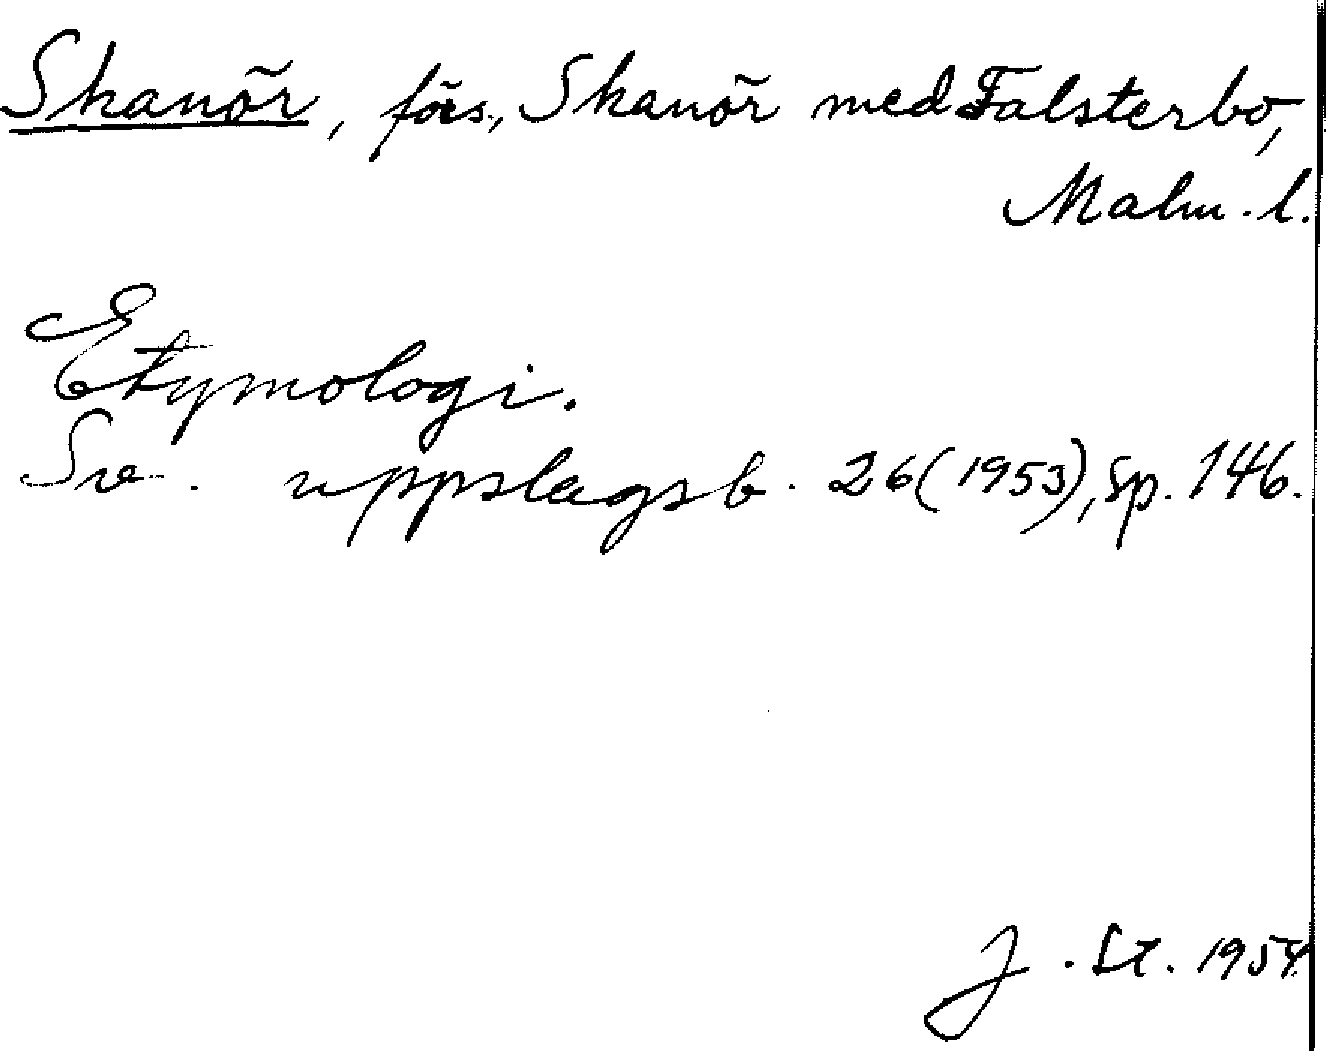 Skanör, förs., Skanör med Falsterbo,
Malm. l.
Etymologi.
Sv. uppslagsb. 26(1953), sp. 146.
J. St. 1954